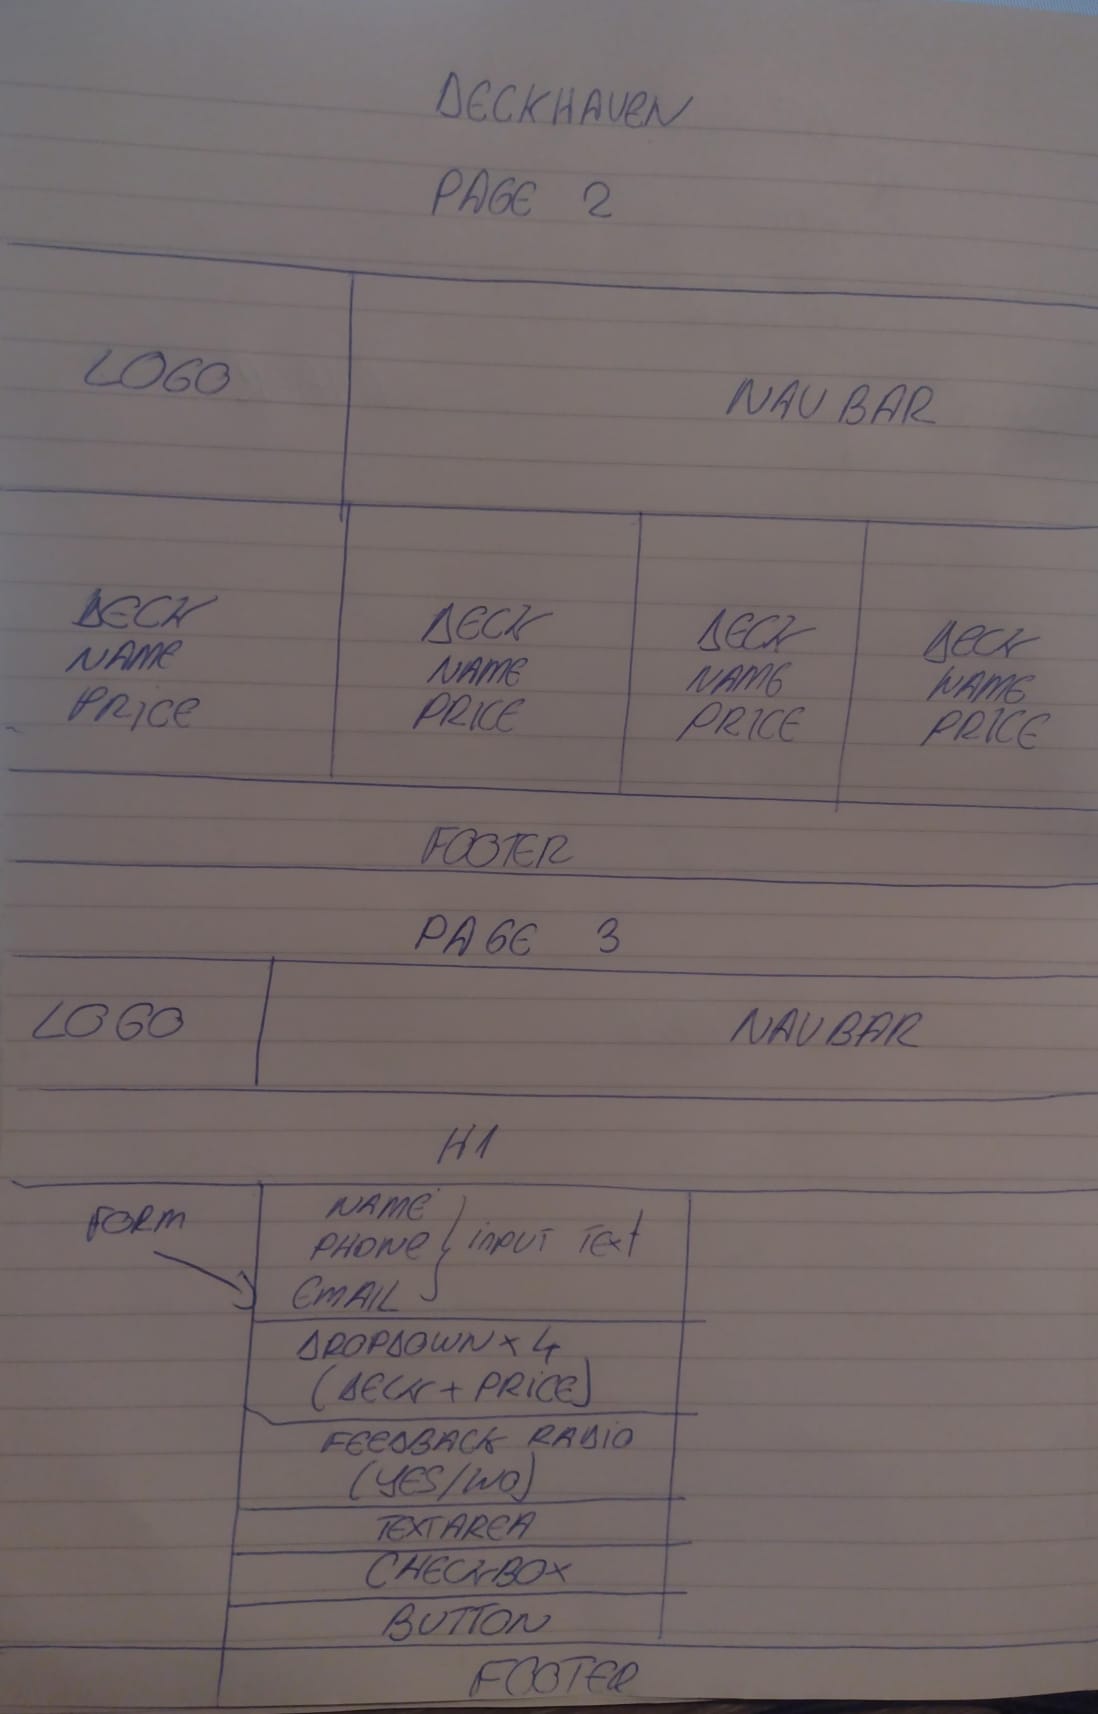 DECKHAVEN
PAGE 2
LOGO
NAVBAR
DECK
NAME
PRICE
DECK
NAME
PRICE
DECK
NAME
PRICE
DECK
NAME
PRICE
FOOTER
PAGE 3
LOGO
NAVBAR
H1
FORM
NAME
PHONE
EMAIL
INPUT TEXT
DROPDOWN x 4
(DECK + PRICE)
FEEDBACK RADIO
(YES/NO)
TEXTAREA
CHECKBOX
BUTTON
FOOTER